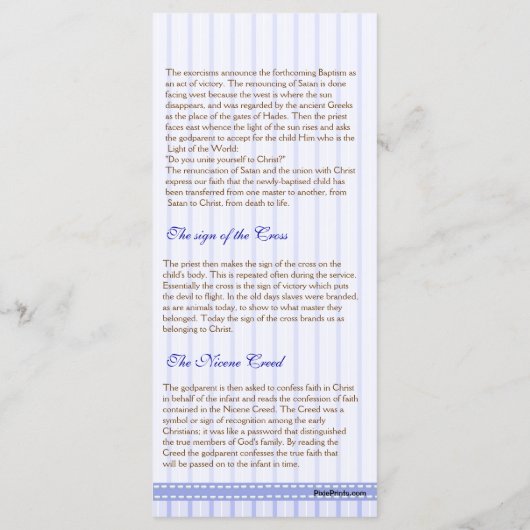 The exorcisms announce the forthcoming Baptism as
an act of victory. The renouncing of Satan is done
facing west because the west is where the sun
disappears, and was regarded by the ancient Greeks
as the place of the gates of Hades. Then the priest
faces east whence the light of the sun rises and asks
the godparent to accept for the child Him who is the
Light of the World:
"Do you unite yourself to Christ?"
The renunciation of Satan and the union with Christ
express our faith that the newly-baptised child has
been transferred from one master to another, from
Satan to Christ, from death to life.
The sign of the Cross
The priest then makes the sign of the cross on the
child's body. This is repeated often during the service.
Essentially the cross is the sign of victory which puts
the devil to flight. In the old days slaves were branded,
as are animals today, to show to what master they
belonged. Today the sign of the cross brands us as
belonging to Christ.
The Nicene Creed
The godparent is then asked to confess faith in Christ
in behalf of the infant and reads the confession of faith
contained in the Nicene Creed. The Creed was a
symbol or sign of recognition among the early
Christians; it was like a password that distinguished
the true members of God's family. By reading the
Creed the godparent confesses the true faith that
will be passed on to the infant in time.
PixiePrints.com